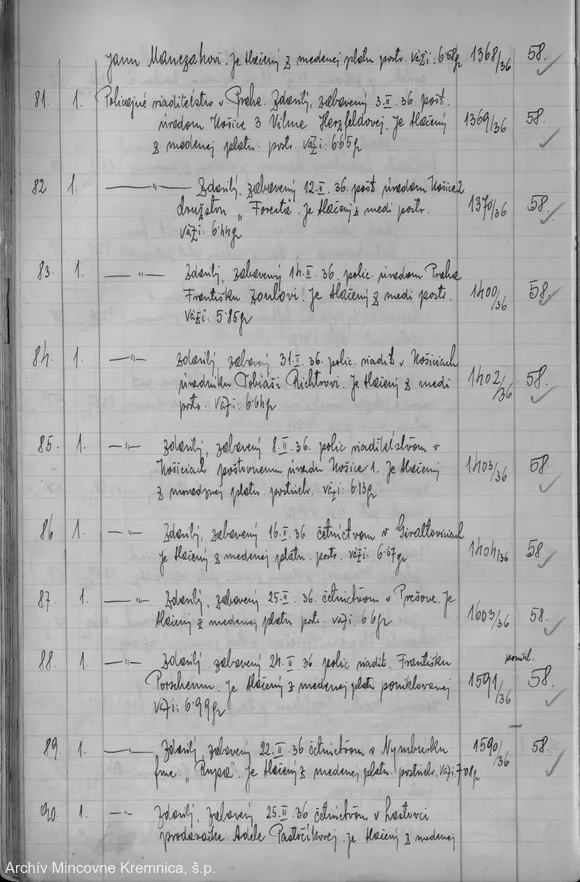 Janu Manczakovi. Je tlačený z medenej platn. postr. váži: 6.58g 1368/36 58.
81. 1. Policajné riaditeľstvo v Prahe. Zdarilý, zabavený 3.II.36 pošt.
úradom Košice 3 Vilme Herzfeldovej. Je tlačený 1369/36 58.
z medenej platn. postr. váži: 6.65g
82 1. —"— Zdarilý, zabavený 12.II.36. pošt úradom Košice 2
družstvu „Foresta". Je tlačený z medi postr. 1370/36 58.
váži: 6.44g
83. 1. —"— Zdarilý, zabavený 14.I.36. polic. úradom Praha
Františku. Je tlačený z medi postr. 1400/36 58.
váži: 5.85g
84. 1. —"— Zdarilý, zabavený 31.I.36. polic. riadit. v Košiciach
úradníku Tobiáši Richtrovi. Je tlačený z medi 1402/36 58.
postr. váži: 6.64g
85. 1. —"— Zdarilý, zabavený 8.II.36. polic riaditeľstvom v
Košiciach poštovnému úradu Košice 1. Je tlačený 1403/36 58.
z platn. postrieb. váži: 6.13g
86 1. —"— Zdarilý, zabavený 16.II.36 četníctvom v Giraltovciach
Je tlačený z medenej platn. postr. váži: 6.67g 1404/36 58
87. 1. —"— Zdarilý, zabavený 25.II.36. četníctvom v Prešove. Je
tlačený z medenej platn. postr. váži: 6.6g 1603/36 58.
88. 1. —"— Zdarilý, zabavený 24.II.36. polic riadit. Františku ponikl.
Je tlačený z medenej platn. poniklovanej 1591/36 58.
váži: 6.99g
89. 1. —"— Zdarilý, zabavený 22.II.36 četníctvom v Nymburku 1590/36 58.
fme „Rupa". Je tlačený z medenej platn. postrieb. váži: 7.08g
90. 1. —"— Zdarilý, zabavený 25.II.36 četníctvom v
predavačke Adele. Je tlačený z medenej
Archív Mincovne Kremnica, š.p.